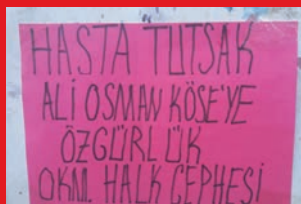 HASTA TUTSAK
ALİ OSMAN KÖSE'YE
ÖZGÜRLÜK
OKM. HALK CEPHESİ